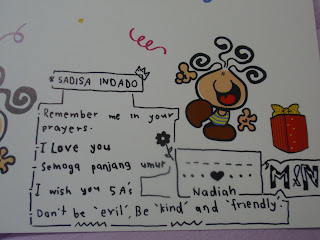 * SADISA INDADO
Remember me in your
prayers.
I Love you
Semoga panjang umur
I wish you 5A's
Nadiah
Don't be `evil', Be `kind' and `friendly'.